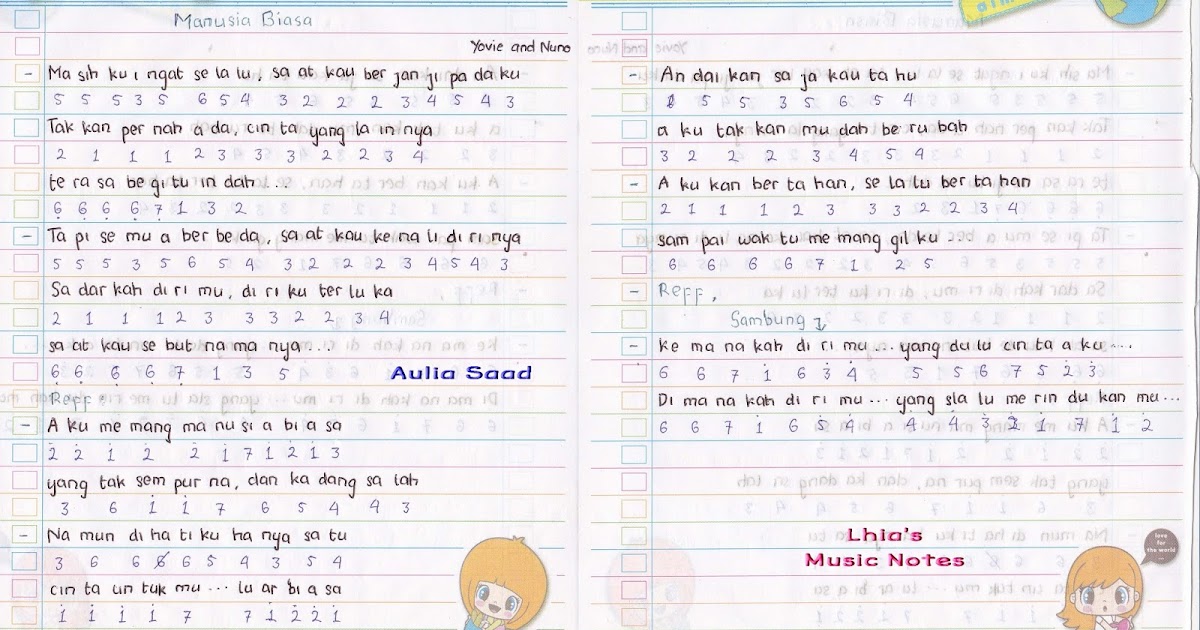 Manusia Biasa
Yovie and Nuno
- Ma sih ku i ngat se la lu, sa at kau ber jan ji pa da ku
5 5 5 3 5 6 5 4 3 2 2 2 3 4 5 4 3
Tak kan per nah a da, cin ta yang la in nya
2 1 1 1 2 3 3 3 2 2 3 4
te ra sa be gi tu in dah ....
6̣ 6̣ 6̣ 6̣ 7̣ 1 3 2
- Ta pi se mu a ber be da, sa at kau ke na li di ri nya
5 5 5 3 5 6 5 4 3 2 2 2 3 4 5 4 3
Sa dar kah di ri mu, di ri ku ter lu ka
2 1 1 1 2 3 3 3 2 2 3 4
sa at kau se but na ma nya ....
6̣ 6̣ 6̣ 6̣ 7̣ 1 3 5
Aulia Saad
Reff :
- A ku me mang ma nu si a bi a sa
2̇ 2̇ 1̇ 2̇ 2̇ 1̇ 7 1̇ 2̇ 1̇ 3
yang tak sem pur na, dan ka dang sa lah
3 6 1̇ 1̇ 7 6 5 4 4 3
- Na mun di ha ti ku ha nya sa tu
3 6 6 6 6 5 4 3 5 4
cin ta un tuk mu ... lu ar bi a sa
1̇ 1̇ 1̇ 1̇ 7 7 1̇ 2̇ 2̇ 1̇
- An dai kan sa ja kau ta hu
5 5 3 5 6 5 4
a ku tak kan mu dah be ru bah
3 2 2 2 3 4 5 4
- A ku kan ber ta han, se la lu ber ta han
2 1 1 1 2 3 3 3 2 2 3 4
sam pai wak tu me mang gil ku ....
6 6 6 6 7 1 2 5
- Reff,
Sambung
- ke ma na kah di ri mu ... yang du lu cin ta a ku ....
6 6 7 1̇ 6 3̇ 4̇ 5 5 6 7 5 2̇ 3̇
Di ma na kah di ri mu ... yang sla lu me rin du kan mu ...
6 6 7 1̇ 6 5̇ 4̇ 4̇ 4̇ 3̇ 2̇ 1̇ 7 1̇ 2̇
Lhia's
Music Notes
love
for
the world
...